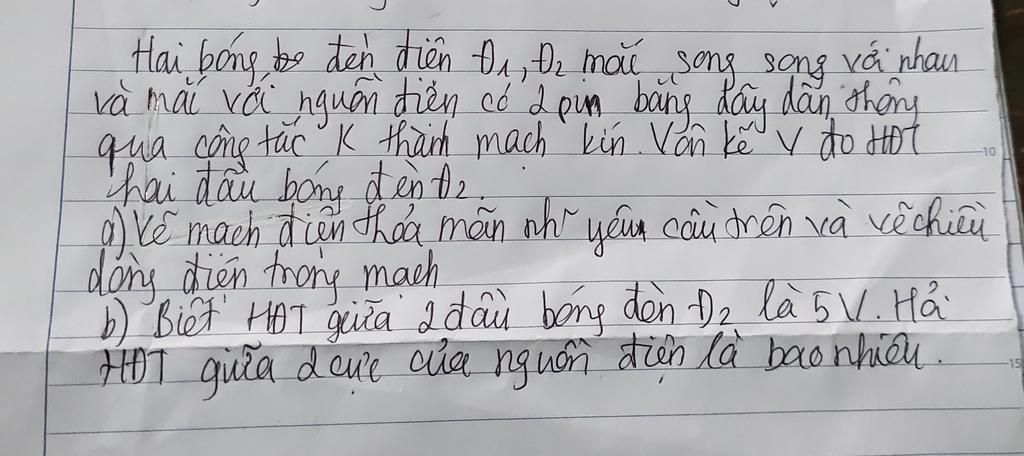 Hai bóng đèn điện Đ1, Đ2 mắc song song với nhau
và mắc với nguồn điện có 2 pin bằng dây dẫn thông
qua công tắc K thành mạch kín. Vôn kế V đo HĐT
hai đầu bóng đèn Đ2.
a) Vẽ mạch điện thỏa mãn như yêu cầu trên và vẽ chiều
dòng điện trong mạch
b) Biết HĐT giữa 2 đầu bóng đèn Đ2 là 5V. Hỏi
HĐT giữa 2 cực của nguồn điện là bao nhiêu.
10
15